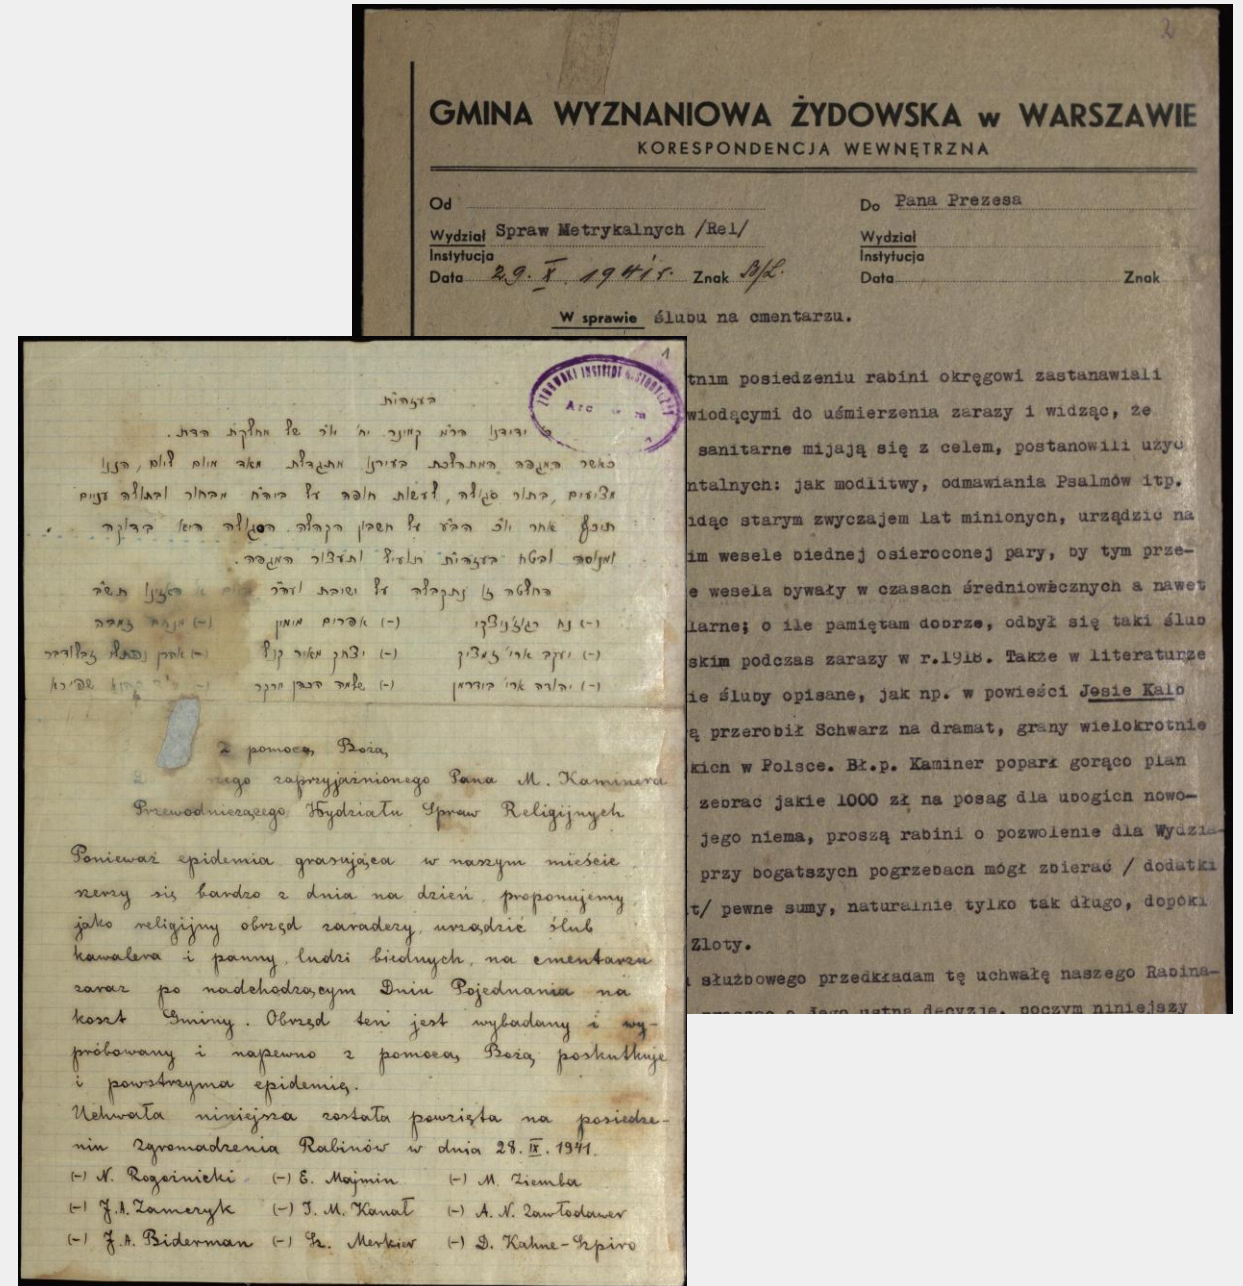 2
GMINA WYZNANIOWA ŻYDOWSKA w WARSZAWIE
KORESPONDENCJA WEWNĘTRZNA
Od Do Pana Prezesa
Wydział Spraw Metrykalnych /Rel/ Wydział
Instytucja Instytucja
Data 29. X. 1941 r. Znak B/L. Data Znak
W sprawie ślubu na cmentarzu.
tnim posiedzeniu rabini okręgowi zastanawiali
wiodącymi do uśmierzenia zarazy i widząc, że
sanitarne mijają się z celem, postanowili użyć
ntalnych: jak modlitwy, odmawiania Psalmów itp.
idąc starym zwyczajem lat minionych, urządzić na
im wesele biednej osieroconej pary, by tym prze-
e wesela bywały w czasach średniowiecznych a nawet
larne; o ile pamiętam dobrze, odbył się taki ślub
skim podczas zarazy w r.1918. Także w literaturze
ie śluby opisane, jak np. w powieści Josie Kalb
ą przerobił Schwarz na dramat, grany wielokrotnie
kich w Polsce. Bł.p. Kaminer poparł gorąco plan
zebrac jakie 1000 zł na posag dla ubogich nowo-
jego niema, proszą rabini o pozwolenie dla Wydzia-
przy bogatszych pogrzebach mógł zbierać / dodatki
t/ pewne sumy, naturalnie tylko tak długo, dopóki
Zloty.
służbowego przedkładam tę uchwałę naszego Rabina-
o Jego ustną decyzję, poczym niniejszy
1
ŻYDOWSKI INSTYTUT HISTORYCZNY
בעזהי״ת
ידידנו הר״מ קמינר יחי׳ יו״ר של מחלקת הדת.
כאשר המגפה המתהלכת בעירנו מתגדלת מאד מיום ליום, הננו
מציעים, בתור סגולה, לעשות חופה על ביה״ח מבחור ובתולה עניים
תיכף אחר יו״כ הבע״ל על חשבון הקהלה. הסגולה היא בדוקה
ומנוסה ובטח בעזהי״ת תועיל ותעצור המגפה.
החלטה זו נתקבלה על ישיבת ועה״ר האזינו תש״ב
(-) נח רגוז׳ניצקי (-) אפרים מימון (-) מנחם זמבה
(-) יעקב ארי׳ זמציק (-) יצחק מאיר קנל (-) אהרן נפתלי זבלודבר
(-) יהודה ארי׳ בידרמן (-) שלמה הכהן מרקר (-) שפירא
Z pomocą Bożą
nego zaprzyjaźnionego Pana M. Kaminera
Przewodniczącego Wydziału Spraw Religijnych
Ponieważ epidemia grasująca w naszym mieście
szerzy się bardzo z dnia na dzień, proponujemy
jako religijny obrząd zaradczy, urządzić ślub
kawalera i panny, ludzi biednych, na cmentarzu
zaraz po nadchodzącym Dniu Pojednania na
koszt Gminy. Obrząd ten jest wybadany i wy-
próbowany i napewno z pomocą Bożą poskutkuje
i powstrzyma epidemię.
Uchwała niniejsza została powzięta na posiedze-
niu Zgromadzenia Rabinów w dniu 28. IX. 1941.
(-) N. Rogoźnicki (-) E. Majmin (-) M. Ziemba
(-) J.A. Zamczyk (-) I. M. Kanał (-) A. N. Zawłodawer
(-) J.A. Biderman (-) Sz. Merkier (-) D. Kahne-Szpiro